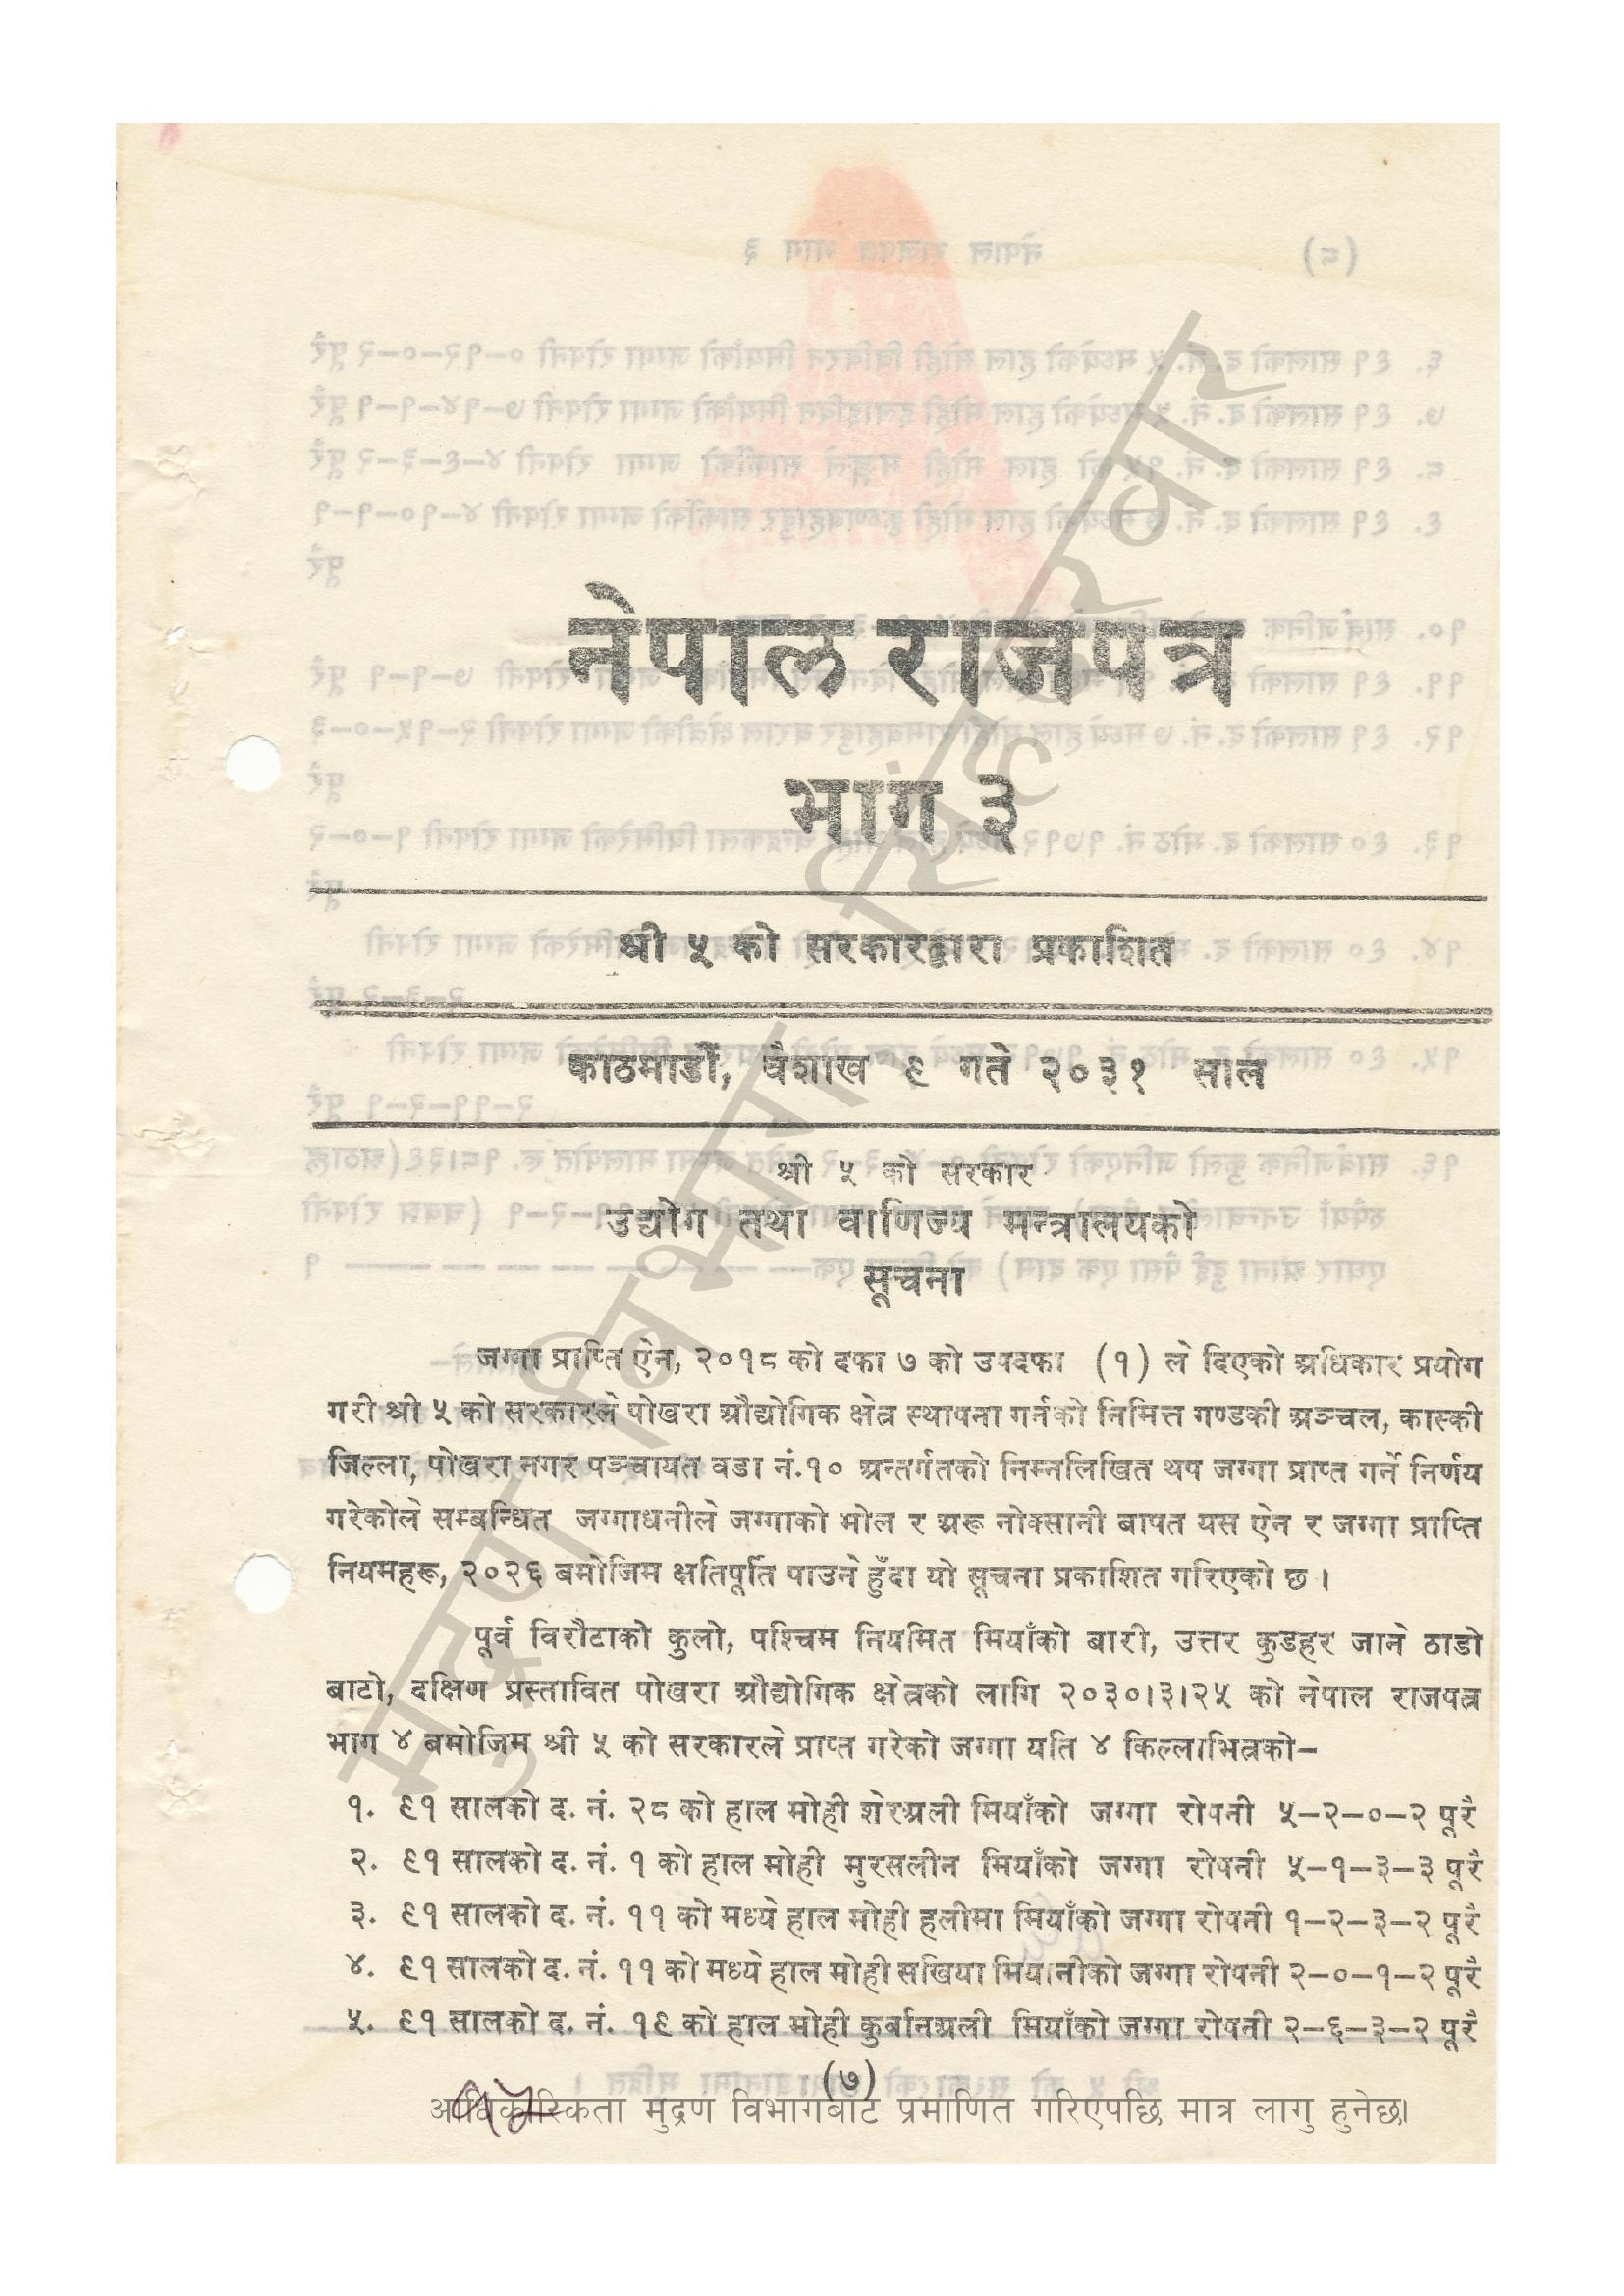 नेपाल राजपत्र
भाग ३
श्री ५ को सरकारद्वारा प्रकाशित
काठमाडौं, वैशाख ९ गते २०३१ साल
श्री ५ को सरकार
उद्योग तथा वाणिज्य मन्त्रालयको
सूचना
जग्गा प्राप्ति ऐन, २०१८ को दफा ७ को उपदफा (१) ले दिएको अधिकार प्रयोग
गरी श्री ५ को सरकारले पोखरा औद्योगिक क्षेत्र स्थापना गर्नको निमित्त गण्डकी अञ्चल, कास्की
जिल्ला, पोखरा नगर पञ्चायत वडा नं.१० अन्तर्गतको निम्नलिखित थप जग्गा प्राप्त गर्ने निर्णय
गरेकोले सम्बन्धित जग्गाधनीले जग्गाको मोल र अरू नोक्सानी बापत यस ऐन र जग्गा प्राप्ति
नियमहरू, २०२६ बमोजिम क्षतिपूर्ति पाउने हुँदा यो सूचना प्रकाशित गरिएको छ ।
पूर्व विरौटाको कुलो, पश्चिम नियमित मियाँको बारी, उत्तर कुडहर जाने ठाडो
बाटो, दक्षिण प्रस्तावित पोखरा औद्योगिक क्षेत्रको लागि २०३०।३।२५ को नेपाल राजपत्र
भाग ४ बमोजिम श्री ५ को सरकारले प्राप्त गरेको जग्गा यति ४ किल्लाभित्रको–
१. ९१ सालको द. नं. २८ को हाल मोही शेरअली मियाँको जग्गा रोपनी ५–२–०–२ पूरै
२. ९१ सालको द. नं. १ को हाल मोही मुरसलीन मियाँको जग्गा रोपनी ५–१–३–३ पूरै
३. ९१ सालको द. नं. ११ को मध्ये हाल मोही हलीमा मियाँको जग्गा रोपनी १–२–३–२ पूरै
४. ९१ सालको द. नं. ११ को मध्ये हाल मोही सखिया मियानीको जग्गा रोपनी २–०–१–२ पूरै
५. ९१ सालको द. नं. १९ को हाल मोही कुर्बानअली मियाँको जग्गा रोपनी २–६–३–२ पूरै
(७)
आधिकारिकता मुद्रण विभागबाट प्रमाणित गरिएपछि मात्र लागु हुनेछ।
मुद्रण विभाग, सिंहदरवार